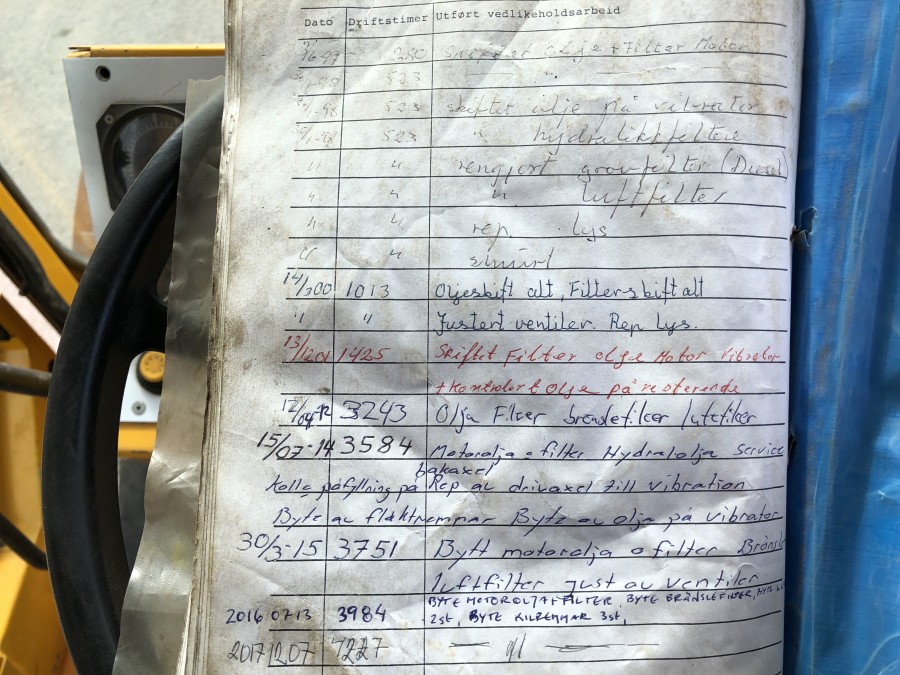 Dato Driftstimer Utført vedlikeholdsarbeid
280 skiftet olje + Filter Motor
523 — " —
523 skiftet olje på vibrator
523 " hydralikkfiltere
" " rengjort grovfilter (Diesel)
" " " luftfilter
" " rep. lys
" " smurt
14/300 1013 Oljeskift alt, Filterskift alt
" " Justert ventiler. Rep lys.
13/1201 1425 Skiftet Filter olje Motor vibrator
+ Kontrolert Olje på resterende
12/04-12 3243 Olja Filter brändefilter luftfilter
15/07-14 3584 Motorolja o filter Hydralolja Service
bakaxel
Kolla påfyllning på Rep av drivaxel till vibration
Byte av fläktremmar Byte av olja på vibrator
30/3-15 3751 Bytt motorolja o filter Bränsle
luftfilter just av ventiler
BYTE MOTOROLJA + FILTER, BYTE BRÄNSLEFILTER, BYTE
20160713 3984 2st, BYTE KILREMMAR 3st,
20171207 4227 — " —